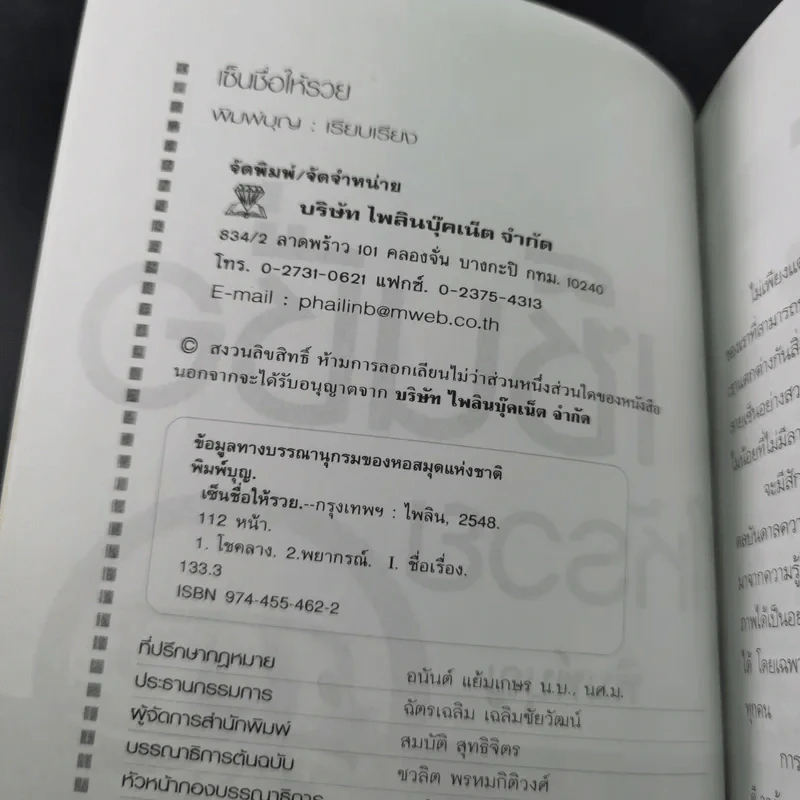 เซ็นชื่อให้รวย
พิมพ์บุญ : เรียบเรียง
จัดพิมพ์/จัดจำหน่าย
บริษัท ไพลินบุ๊คเน็ต จำกัด
834/2 ลาดพร้าว 101 คลองจั่น บางกะปิ กทม. 10240
โทร. 0-2731-0621 แฟกซ์. 0-2375-4313
E-mail : phailinb@mweb.co.th
© สงวนลิขสิทธิ์ ห้ามการลอกเลียนไม่ว่าส่วนหนึ่งส่วนใดของหนังสือ
นอกจากจะได้รับอนุญาตจาก บริษัท ไพลินบุ๊คเน็ต จำกัด
ข้อมูลทางบรรณานุกรมของหอสมุดแห่งชาติ
พิมพ์บุญ.
เซ็นชื่อให้รวย.--กรุงเทพฯ : ไพลิน, 2548.
112 หน้า.
1. โชคลาง. 2.พยากรณ์. I. ชื่อเรื่อง.
133.3
ISBN 974-455-462-2
ที่ปรึกษากฎหมาย อนันต์ แย้มเกษร น.บ., นศ.ม.
ประธานกรรมการ ฉัตรเฉลิม เฉลิมชัยวัฒน์
ผู้จัดการสำนักพิมพ์ สมบัติ สุทธิจิตร
บรรณาธิการต้นฉบับ ชวลิต พรหมกิติวงศ์
หัวหน้ากองบรรณาธิการ
ไม่เพียงแต่
ของเราที่สามารถ
แตกต่างกันสิ่
ไม่น้อยที่ไม่มีลา
จะมีสัก
ดลบันดาลความ
มาจากความรู้
ภาพได้เป็นอย
ได้ โดยเฉพา
ทุกคน
การ